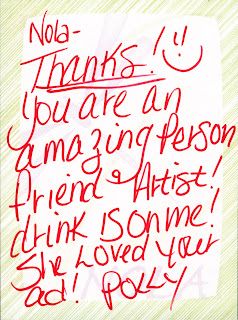 Nola-
Thanks! :)
You are an
amazing Person
Friend & Artist!
drink is on me!
She Loved your
ad! Polly